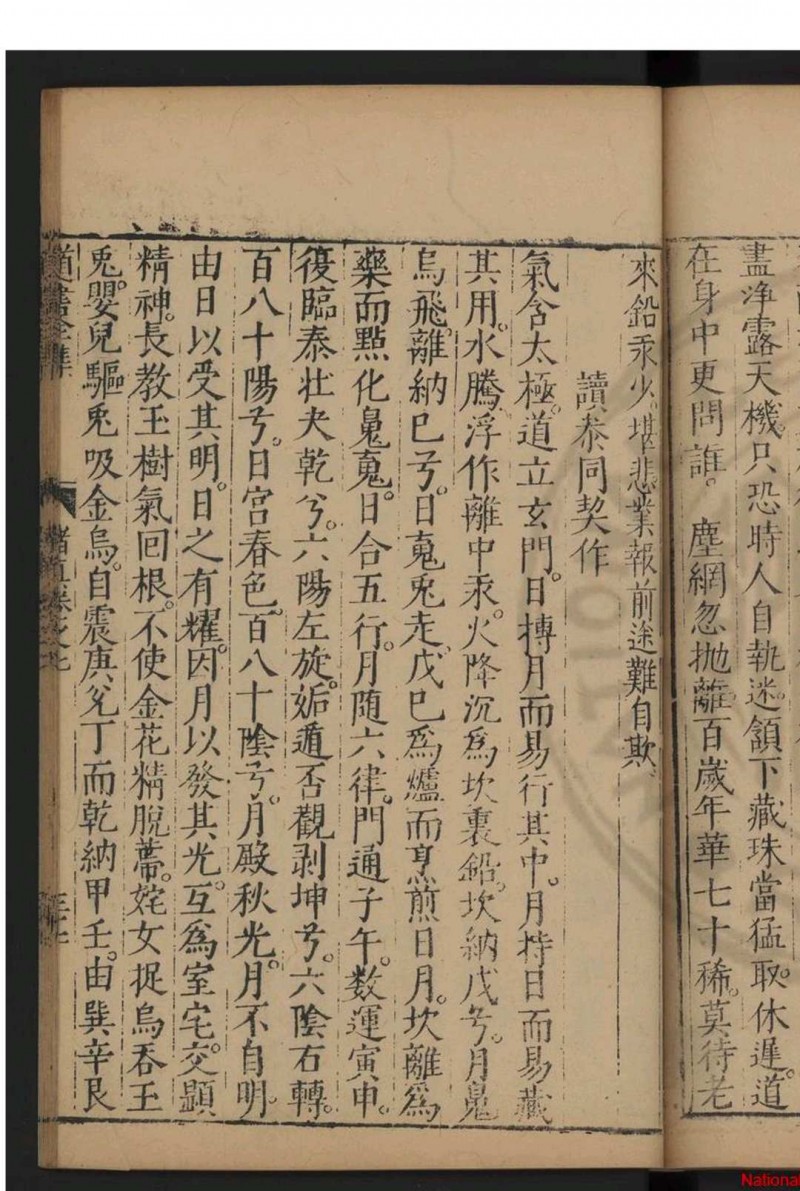 盡淨露天機只恐時人自執迷額下藏珠當猛取休遲道
在身中更問誰 塵網忽抛離百歲年華七十稀莫待老
來鉛汞少堪悲業報前途難自欺
讀叅同契作
氣含太極道立玄門日摶月而易行其中月持日而易藏
其用水騰浮作離中汞火降沉為坎裏鉛坎納戊兮月䰟
烏飛離納巳兮日䰟兎走戊巳為爐而烹煎日月坎離為
藥而㸃化䰟䰟日合五行月随六律門通子午数運寅申
復臨泰壮夬乾兮六陽左旋姤遁否觀剥坤兮六陰右轉
百八十陽兮日宫春色百八十陰兮月殿秋光月不自明
由日以受其明日之有耀因月以發其光互為室宅交顕
精神長教玉樹氣回根不使金花精脫蔕姹女捉烏吞玉
兎嬰兒驅兎吸金烏自震庚兊丁而乾納甲壬由巽辛艮
道書全集
諸真
National